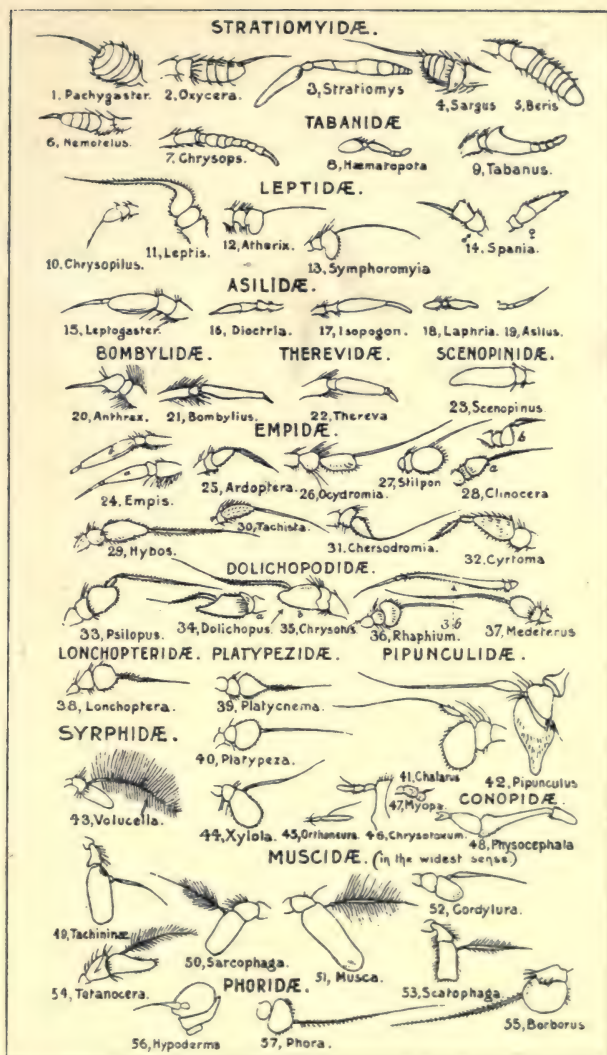 STRATIOMYIDÆ.
1. Pachygaster. 2, Oxycera. 3, Stratiomys 4, Sargus 5, Beris
6, Nemotelus. TABANIDÆ
7. Chrysops. 8, Hæmatopota 9, Tabanus.
LEPTIDÆ.
10. Chrysopilus. 11, Leptis. 12, Atherix. 13, Symphoromyia 14. Spania.
♂ ♀
ASILIDÆ.
15, Leptogaster. 16, Dioctria. 17, Isopogon. 18, Laphria. 19, Asilus.
BOMBYLIDÆ. THEREVIDÆ. SCENOPINIDÆ.
20, Anthrax. 21, Bombylius. 22, Thereva 23, Scenopinus.
EMPIDÆ.
b a b a
24, Empis. 25, Ardoptera. 26, Ocydromia. 27, Stilpon 28, Clinocera
29, Hybos. 30, Tachista. 31, Chersodromia. 32, Cyrtoma
DOLICHOPODIDÆ.
a b 36
33, Psilopus. 34, Dolichopus. 35, Chrysotus. 36, Rhaphium. 37, Medeterus
LONCHOPTERIDÆ. PLATYPEZIDÆ. PIPUNCULIDÆ.
38, Lonchoptera. 39, Platycnema.
40, Platypeza.
SYRPHIDÆ.
41, Chalarus 42, Pipunculus
43, Volucella. 44, Xylota. 45, Orthoneura. 46, Chrysotoxum. 47, Myopa.
CONOPIDÆ.
48, Physocephala
MUSCIDÆ. (in the widest sense)
49, Tachininæ 50, Sarcophaga. 51, Musca. 52, Cordylura.
53, Scatophaga.
54, Tetanocera. PHORIDÆ. 55, Borborus
56, Hypoderma 57, Phora.